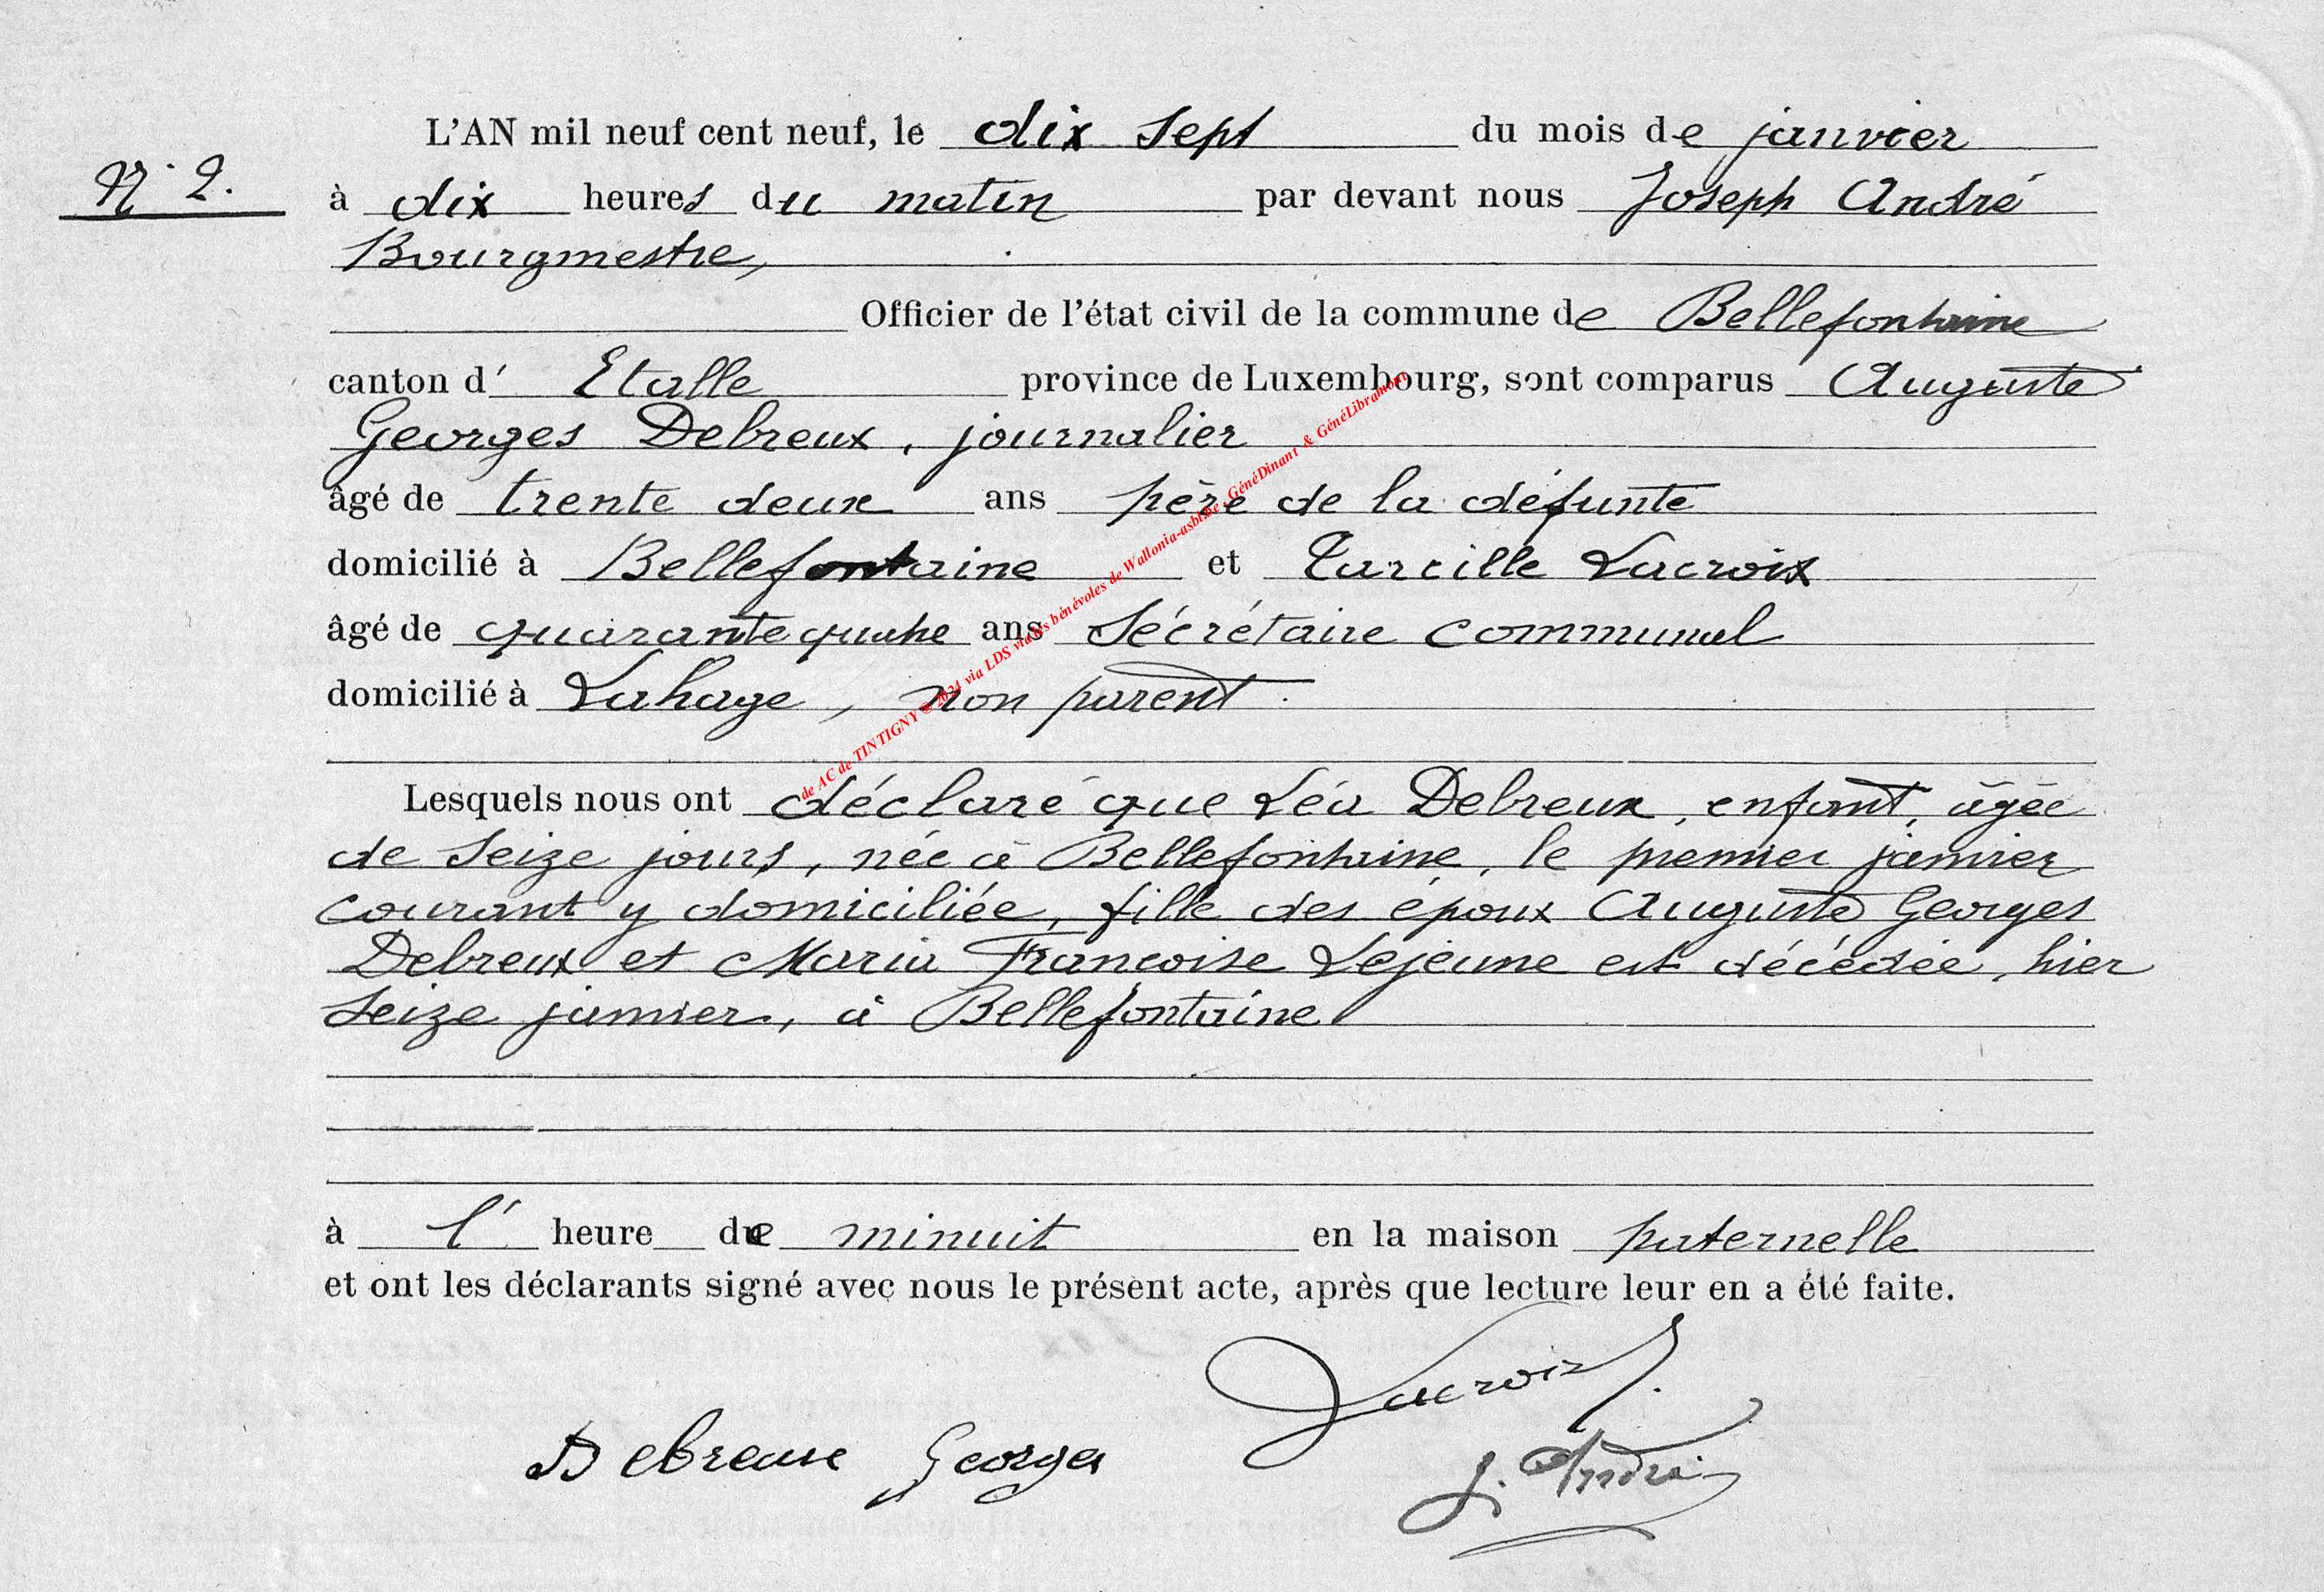 L'AN mil neuf cent neuf, le dix sept du mois de janvier
N° 2.
à dix heures du matin par devant nous Joseph André
Bourgmestre,
Officier de l'état civil de la commune de Bellefontaine
canton d' Etalle province de Luxembourg, sont comparus Auguste
Georges Debreux, journalier
âgé de trente deux ans père de la défunte
domicilié à Bellefontaine et Tarcille Lacroix
âgé de quarante quatre ans Sécrétaire communal
domicilié à Lahage, non parent.
Lesquels nous ont déclaré que Léa Debreux, enfant, âgée
de seize jours, née à Bellefontaine, le premier janvier
courant y domiciliée, fille des époux Auguste Georges
Debreux et Maria Françoise Lejeune est décédée, hier
seize janvier, à Bellefontaine
à l' heure de minuit en la maison paternelle
et ont les déclarants signé avec nous le présent acte, après que lecture leur en a été faite.
Lacroix
Debreux Georges
J. André
de AC de TINTIGNY @ 2024 via LDS via les bénévoles de Wallonia-asbl.be, GénéDinant & GénéLibramont